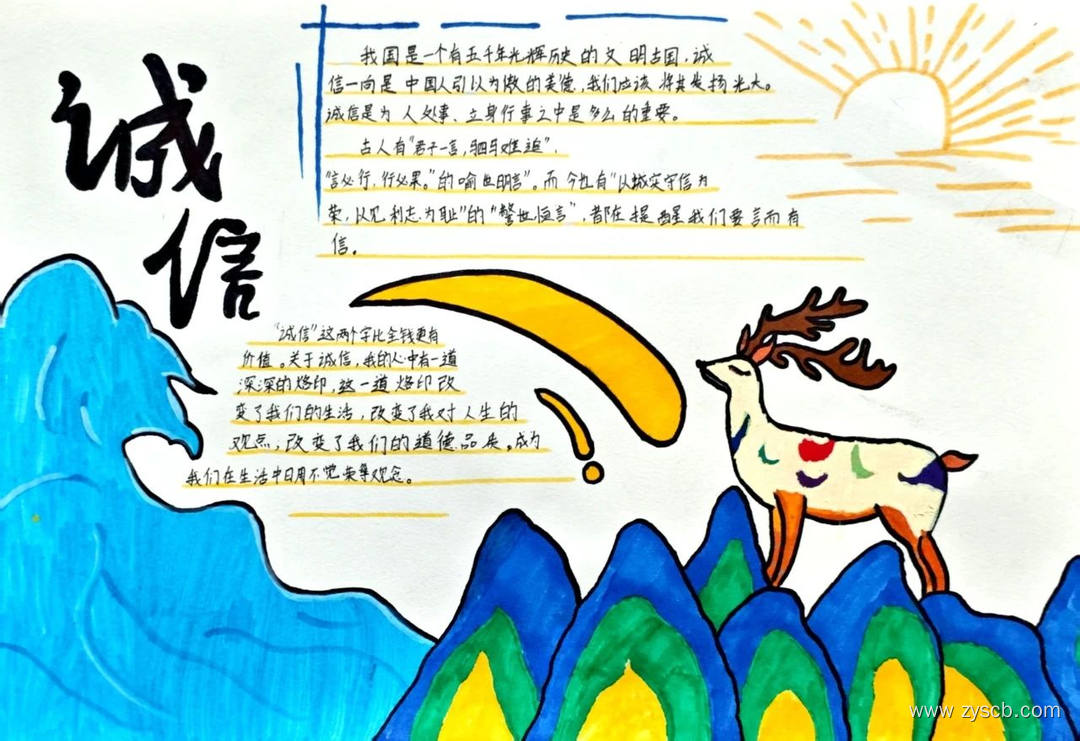 诚
信
我国是一个有五千年光辉历史的文明古国,诚
信一向是中国人引以为傲的美德,我们应该将其发扬光大。
诚信是为人处事、立身行事之中是多么的重要。
古人有"君子一言,驷马难追",
"言必行,行必果。"的喻世明言"。而今也有"以诚实守信为
荣,以见利忘为耻"的"警世恒言",都在提醒我们要言而有
信。
"诚信"这两个字比金钱更有
价值。关于诚信,我的心中有一道
深深的烙印,这一道烙印改
变了我们的生活,改变了我对人生的
观点,改变了我们的道德品质。成为
我们在生活中日用不觉荣辱观念。
www.zyscb.com